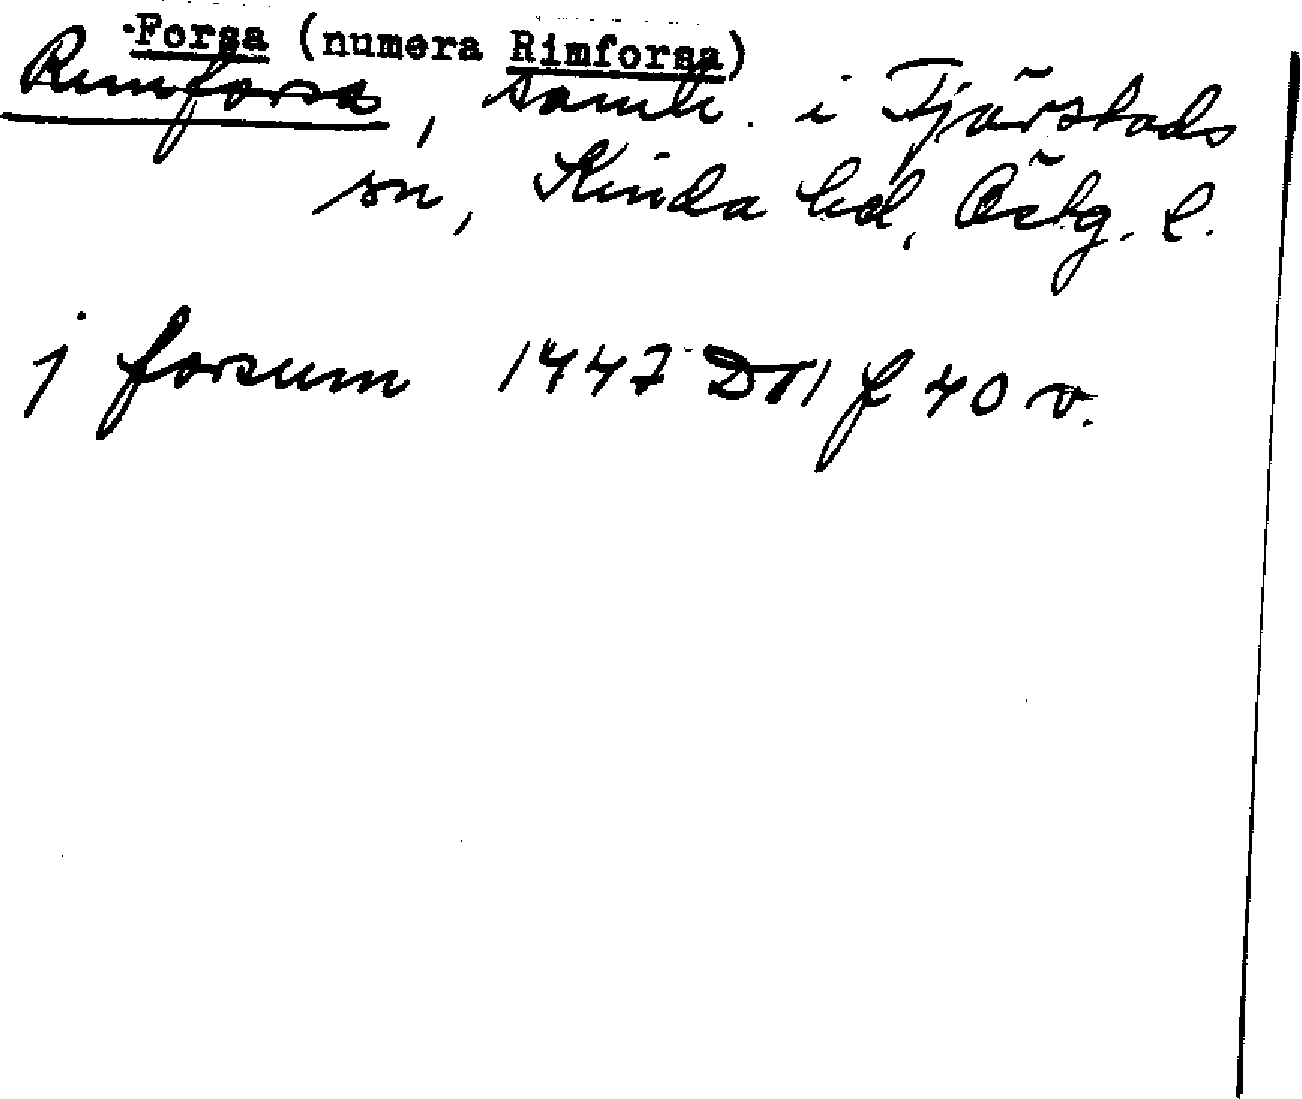 Forsa (numera Rimforsa)
Rimforsa, samh. i Tjärstads
sn, Kinda hd, Östg. l.
j forsum 1447 D11 f 40 v.